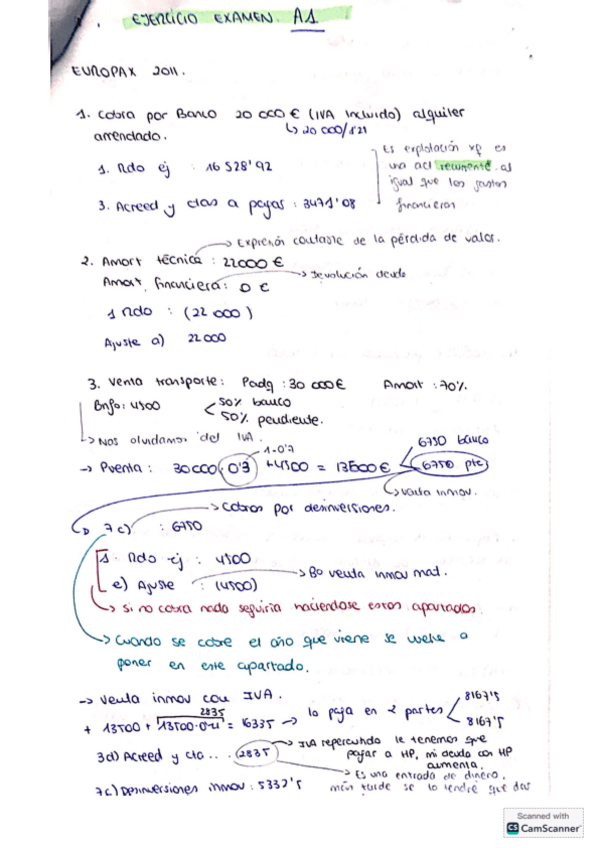 EJERCICIO EXAMEN. A1
EUROPAX 2011.
1. Cobra por Banco 20 000 € (IVA incluido) alquiler
↳ 20 000/1'21
arrendado.
1. Rdo ej : 16 528'92
3. Acreed y ctas a pagar : 3471'08
Es explotación xq es
una act recurrente al
igual que los gastos
financieros
→ Expresión contable de la pérdida de valor.
2. Amort técnica : 22000 €
Amort. financiera : 0 €
→ Devolución deuda
1 Rdo : (22 000)
Ajuste a) 22 000
3. Venta transporte : Padq : 30 000 € Amort : 70%.
Bnfo : 4500
50% banco
50% pendiente.
↳ Nos olvidamos del IVA.
1-0'7
→ Pventa : 30000 · 0'3 + 4500 = 13500 €
6750 banco
6750 pte
↳ Venta inmov.
→ Cobros por desinversiones.
7c) : 6750
1. Rdo ej : 4500
e) Ajuste : (4500)
→ Bo venta inmov mat.
↳ Si no cobra nada seguiria haciendose estos apartados.
→ Cuando se cobre el año que viene se vuelve a
poner en este apartado.
→ Venta inmov con IVA.
2835
+ 13500 + 13500·0'21 = 16335 → lo paga en 2 partes
8167'5
8167'5
3d) Acreed y cta... 2835
→ IVA repercutido le tenemos que
pagar a HP, mi deuda con HP
aumenta.
→ Es una entrada de dinero,
más tarde se lo tendré que dar
7c) Desinversiones inmov : 5332'5
Scanned with
CS CamScanner